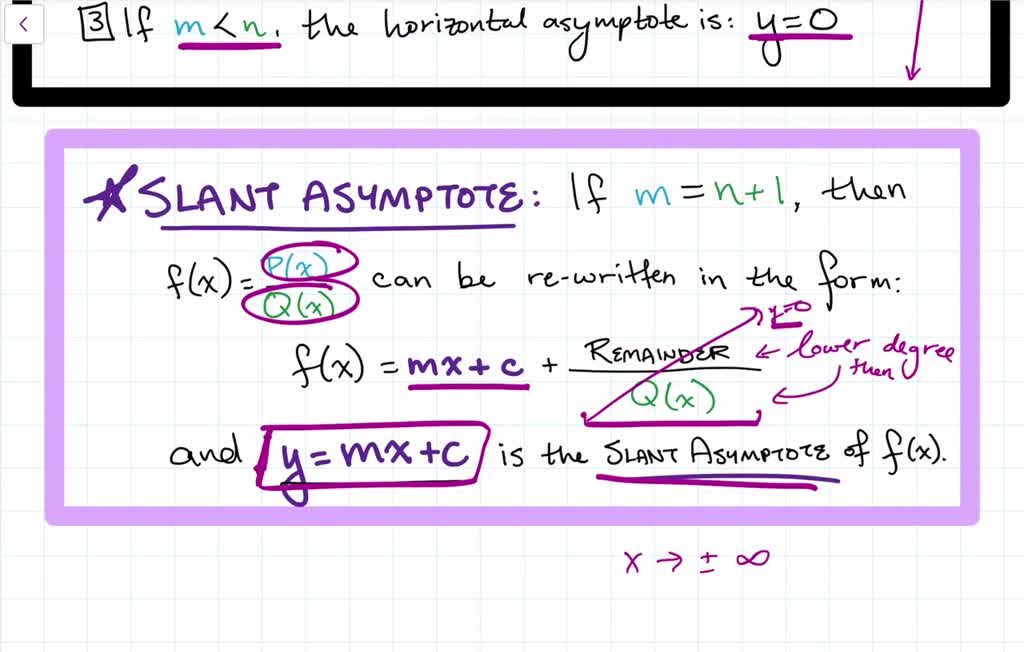 3 If m < n, the horizontal asymptote is: y = 0
★ SLANT ASYMPTOTE: If m = n+1, then
f(x) = P(x)/Q(x) can be re-written in the form:
y=0
f(x) = mx + c + REMAINDER/Q(x) ← lower degree then
and y = mx + c is the SLANT ASYMPTOTE of f(x).
x → ± ∞